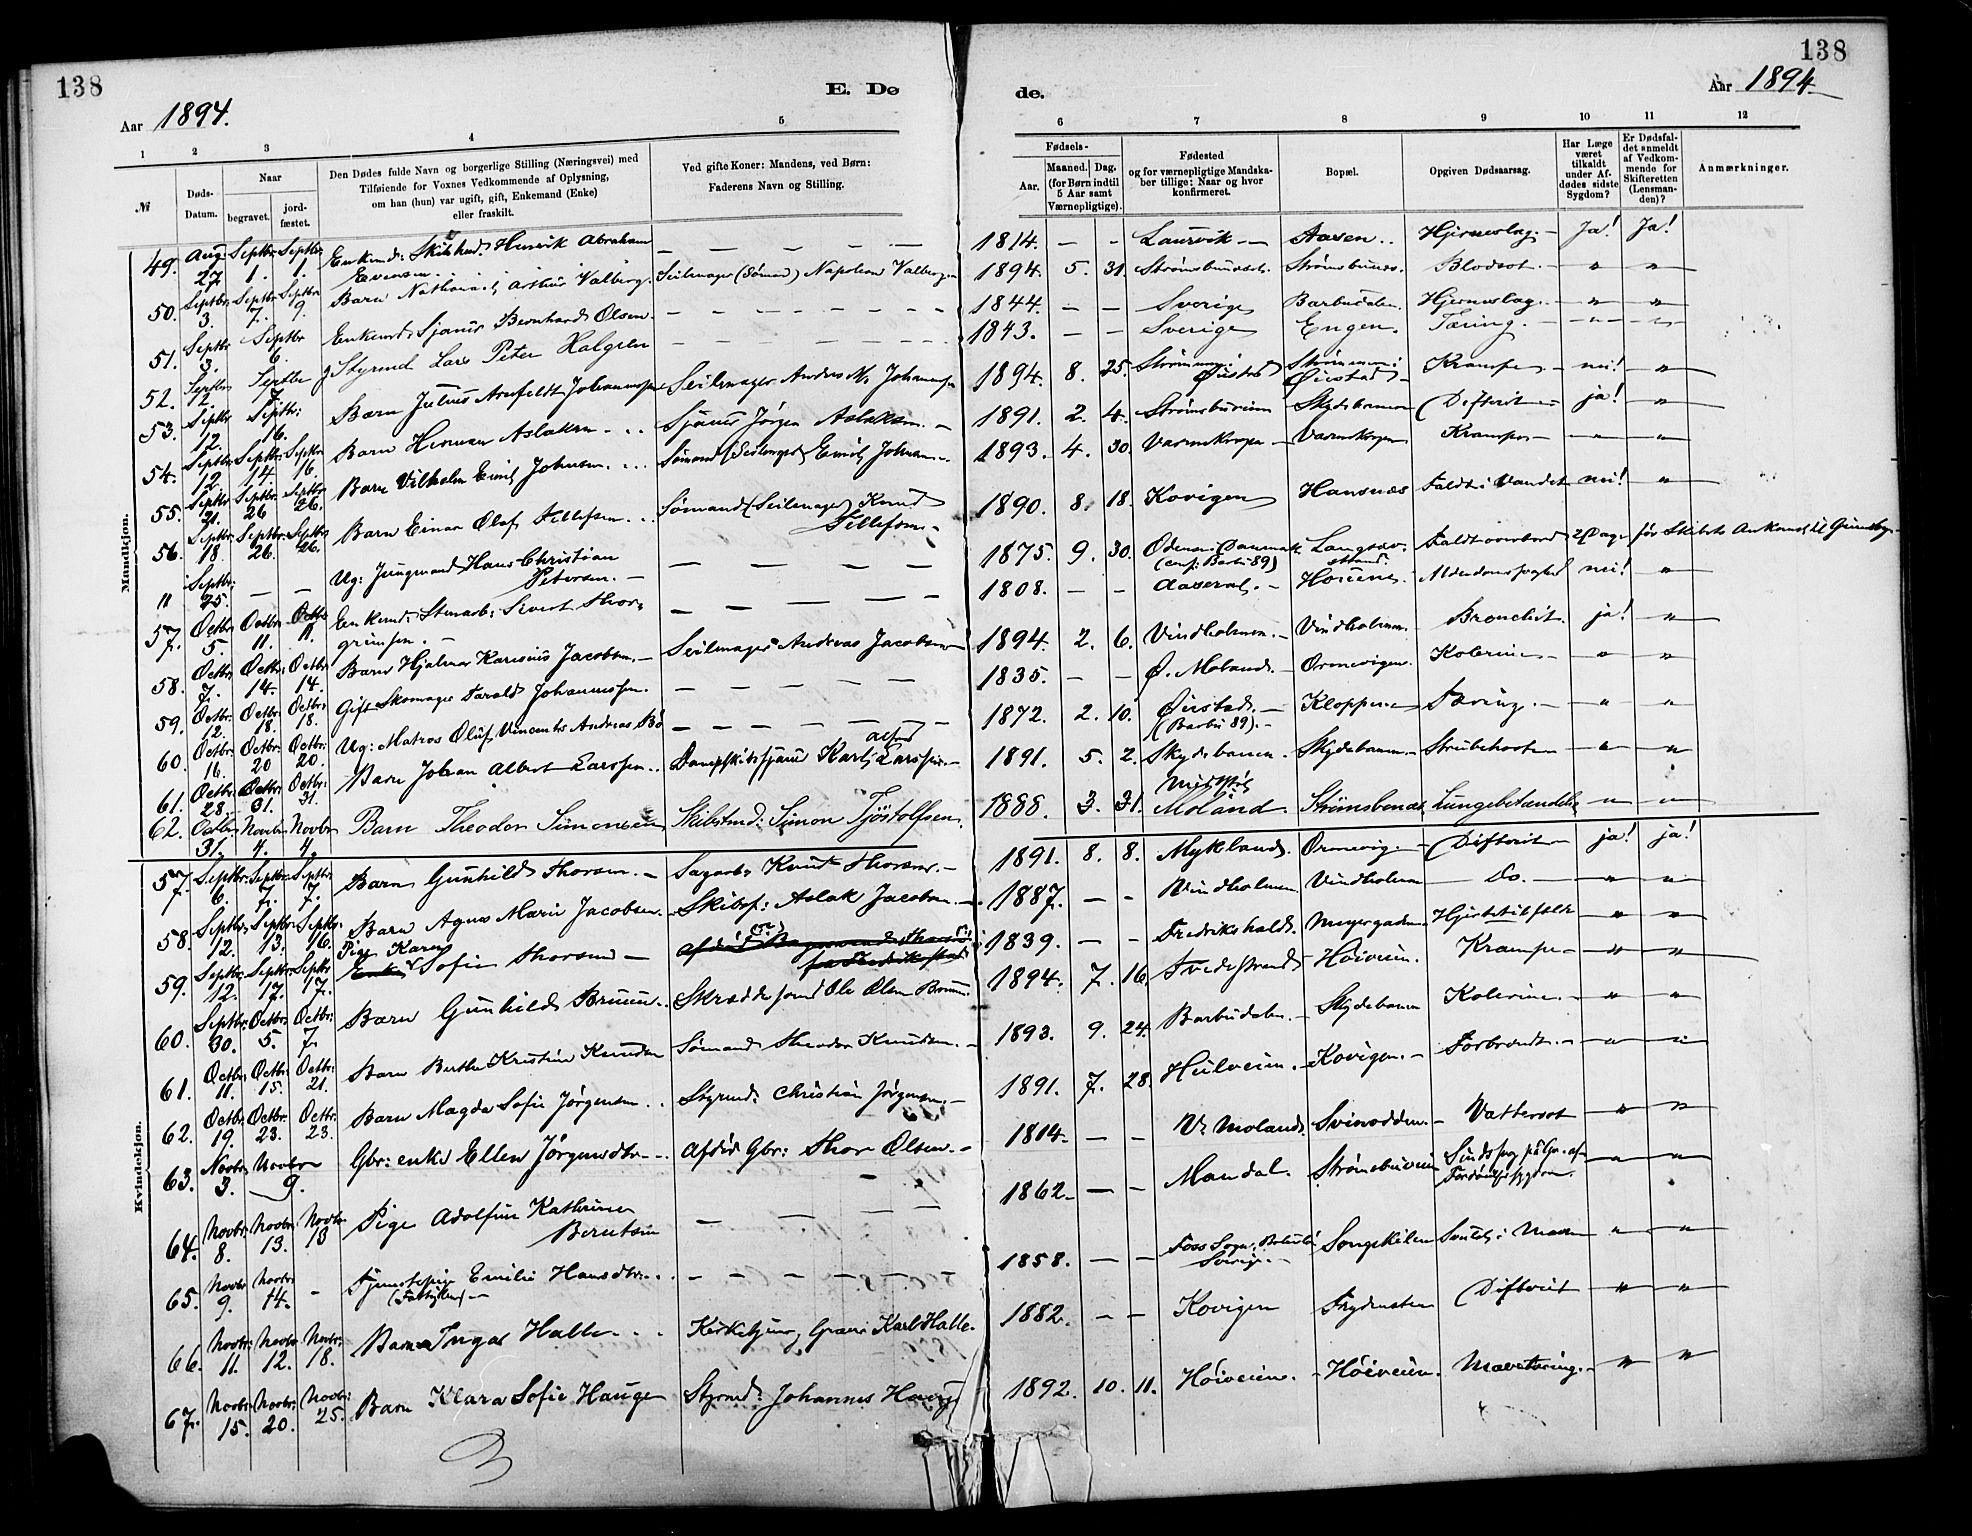 138
Aar 1894.
E. Dø
de.
138
Aar 1894.
1 2 3 4 5 6 7 8 9 10 11 12
№
Døds-Datum.
Naar
begravet.
jord-fæstet.
Den Dødes fulde Navn og borgerlige Stilling (Næringsvei) med
Tilføiende for Voxnes Vedkommende af Oplysning,
om han (hun) var ugift, gift, Enkemand (Enke)
eller fraskilt.
Ved gifte Koner: Mandens, ved Børn:
Faderens Navn og Stilling.
Fødsels-
Aar.
Maaned. Dag.
(for Børn indtil
5 Aar samt
Værnepligtige).
Fødested
og for værnepligtige Mandska-
ber tillige: Naar og hvor
konfirmeret.
Bopæl.
Opgiven Dødsaarsag.
Har Læge
været
tilkaldt
under Af-
dødes sidste
Sygdom?
Er Dødsfal-
det anmeldt
af Vedkom-
mende for
Skifteretten
(Lensman-
den)?
Anmærkninger.
Mandkjøn.
49. Aug 27 Septbr 1. Septbr 1. Enkemd: Henrik Abraham Evensen. — 1814. — - Laurvik — Aasen.. Hjerneslag. — Ja! Ja!
50. Septbr 3. Septbr 7. Septbr 9. Barn Nathanael Arthur Valberg. Seilmager (Sømand) Napoleon Valberg. 1894. 5. 31. Strømsbunes. Blodsot. — " "
51. Septbr 3. Septbr 6. Enkemd Bernhard Olsen. — 1844. — — Sverige Barbudalen Hjerneslag. — " "
52. Septbr 12. Septbr 7. Styrmd Lars Peter Halgren — 1843. — — Sverige Engen. Tæring. — " "
53. Septbr 12. Septbr: 16. Barn Julius Arnfeldt Johannessen Seilmager Andreas M. Johannesen 1894. 8. 25. Strømmen i Øiestad Strømmen i Øiestad Krampe — nei! "
54. Septbr 12 Septbr. 14. Septbr 16 Barn Herman Aslaksen Jørgen Aslaksen. 1891. 2. 4. Strømsbuveien Skydebanen Difterit — ja! "
55. Septbr 21. Septbr. 26 Septbr 26. Barn Vilhelm Emil Johnsen. Sømand (Seilmager) Emil Johnsen 1893. 4. 30. Krampe — " "
56. Septbr. 18 Septbr. 26. Septbr 26. Barn Einar Olaf Tellefsen. Sømand (Seilmager) Knud Tellefsen. 1890. 8. 18. Kovigen Hansnæs Faldt i Vandet nei! "
11 Septbr: 25. — — Ug: Jungmand Hans Christian Petersen. — 1875. 9. 30. Odense Danmark (conf: Barbu 89) Faldt overbord 2 Dage før Skibets Ankomst til Grimsby.
57. Octbr 5. Octbr. 11. Octbr 11. Enkemd: Stenarb: Sivert Thorgrimsen. — 1808. — — Aaseral. Høieveien Alderdomssvaghed nei! "
58. Octbr. 7. Octbr. 14. Octbr: 14. Barn Hjalmar Karenius Jacobsen. — Seilmager Andreas Jacobsen 1894. 2. 6. Vindholmen. — Vindholmen. Bronchit. ja! "
59. Octbr: 12. Octbr. 18. Octbr: 18. Gift Skomager Tarald Johannessen. — 1835. — — Ø. Moland. — Ormevigen. Kolerine — " "
60. Octbr: 16. Octbr. 20 Octbr. 20. Ug: Matros Oluf Vincents Andreas Bö — 1872. 2. 10. Øiestad. — (Barbu 89). — Kloppene Tæring. — " "
61. Octbr: 28. Octbr: 31. Octbr: 31. Barn Johan Albert Larssen.. Karl Alfred Larssen. — 1891. 5. 2. Skydebanen. Skydebanen. — Strubehoste " "
62. Octbr: 31. Novbr 4. Novbr 4. Barn Theodor Simonsen Skibstmd: Simon Tjöstolfsen. 1888. 3. 31. Moland. Strømsbunes Lungebetændelse " "
Kvindekjøn.
57. Septbr. 6. Septbr. 7. Septbr. 7. Barn Gunhild Thorsen. — Sagarb: Knut Thorsen. — 1891. 8. 8. Mykland. Ormevig. — Difterit — ja! ja!
58. Septbr. 12. Septbr. 13. Septbr. 16. Barn Agnes Marie Jacobsen. Skibsf: Aslak Jacobsen. — 1887. — — Vindholmen Vindholmen — Do. — " "
59. Septbr. 12. Septbr. 17. Septbr 17. Pige Karen Sofie Thorsen — 1839. — — Fredrikshald. Hjertetilfælde " "
60. Septbr: 30. Octbr: 5. Octbr: 7. Barn Gunhild Bruun. Skrædder Ole Olsen Bruun. 1894. 7. 16. Tvedestrand Høiveien. Krampe — " "
61. Octbr: 11. Octbr: 15. Octbr: 21. Barn Berthe Kristine Knudsen Sømand Theodor Knudsen. — 1893. 9. 24. Barbudalen. — Skydebanen Kolerine. — " "
62. Octbr: 19. Octbr. 23. Octbr. 23. Barn Magda Sofie Jørgensen. . Styrmd: Christian Jørgensen. — 1891. 7. 28. Kovigen. — Forbrændt. — " "
63. Novbr: 3. Novbr — 9. Gbr: enke Ellen Jørgensdtr. — Afdød Gbr: Thor Olsen. — 1814. — — V. Moland. Svinodden. — Vattersot " "
64. Novbr: 8. Novbr. 13. Novbr 13 Pige Adolfine Kathrine Berntsen — 1862. — — Mandal. Strømsbuveien " "
65. Novbr: 9. Novbr: 14. — Tjenestepige Emilie Hansdtr. . — 1858. — — Foss Sogn, Sverige. — Songekilen " "
66. Novbr: 11. Novbr 12. Novbr: 18. Barn Inga Halle. . . Karl Halle. 1882. — — Kovigen Frydensten Difterit " "
67. Novbr: 15. Novbr: 20. Novbr: 25. Barn Klara Sofie Hauge Styrmd: Johannes Hauge 1892. 10. 11. Høiveien. — Høiveien. Mavetæring. — " "